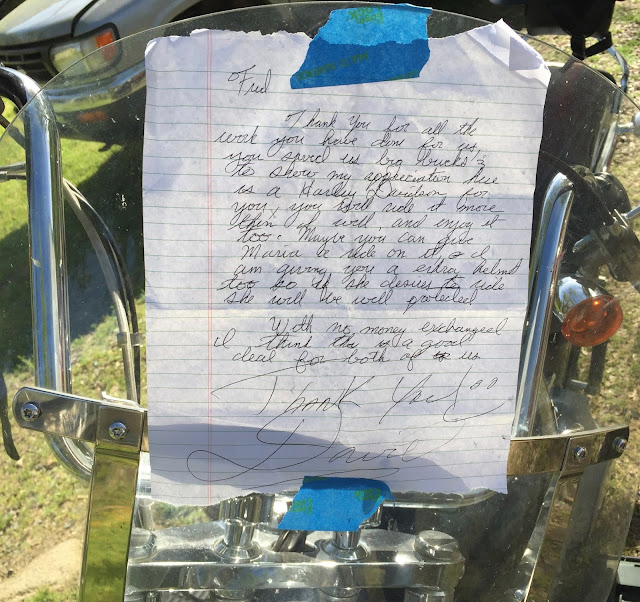 Fred
Thank You for all the
work you have done for us,
you saved us big bucks &
to show my appreciation here
is a Harley Davidson for
you, you will ride it more
then I will, and enjoy it
too. Maybe you can give
Maria a ride on it, & I
am giving you a extra helmet
too so if she desires to ride
she will be well protected
With no money exchanged
I think this is a good
deal for both of us
Thank You!
David